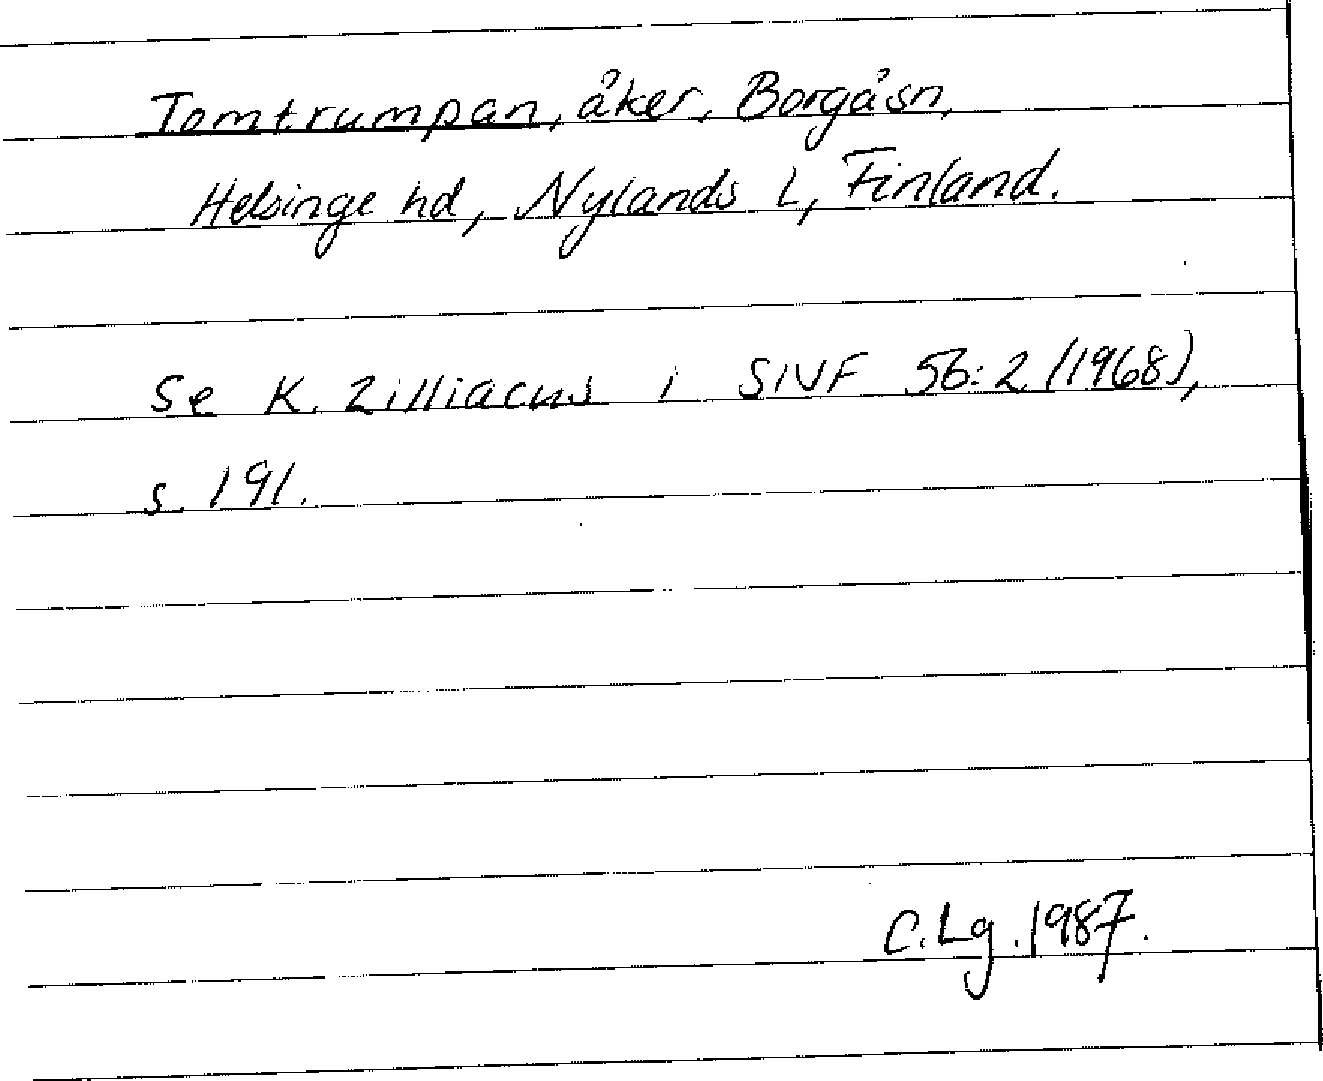 Tomtrumpan, åker, Borgå sn,
Helsinge hd, Nylands l, Finland.
Se K. Zilliacus i SNF 56:2 (1968),
s. 191.
C.Lg. 1987.